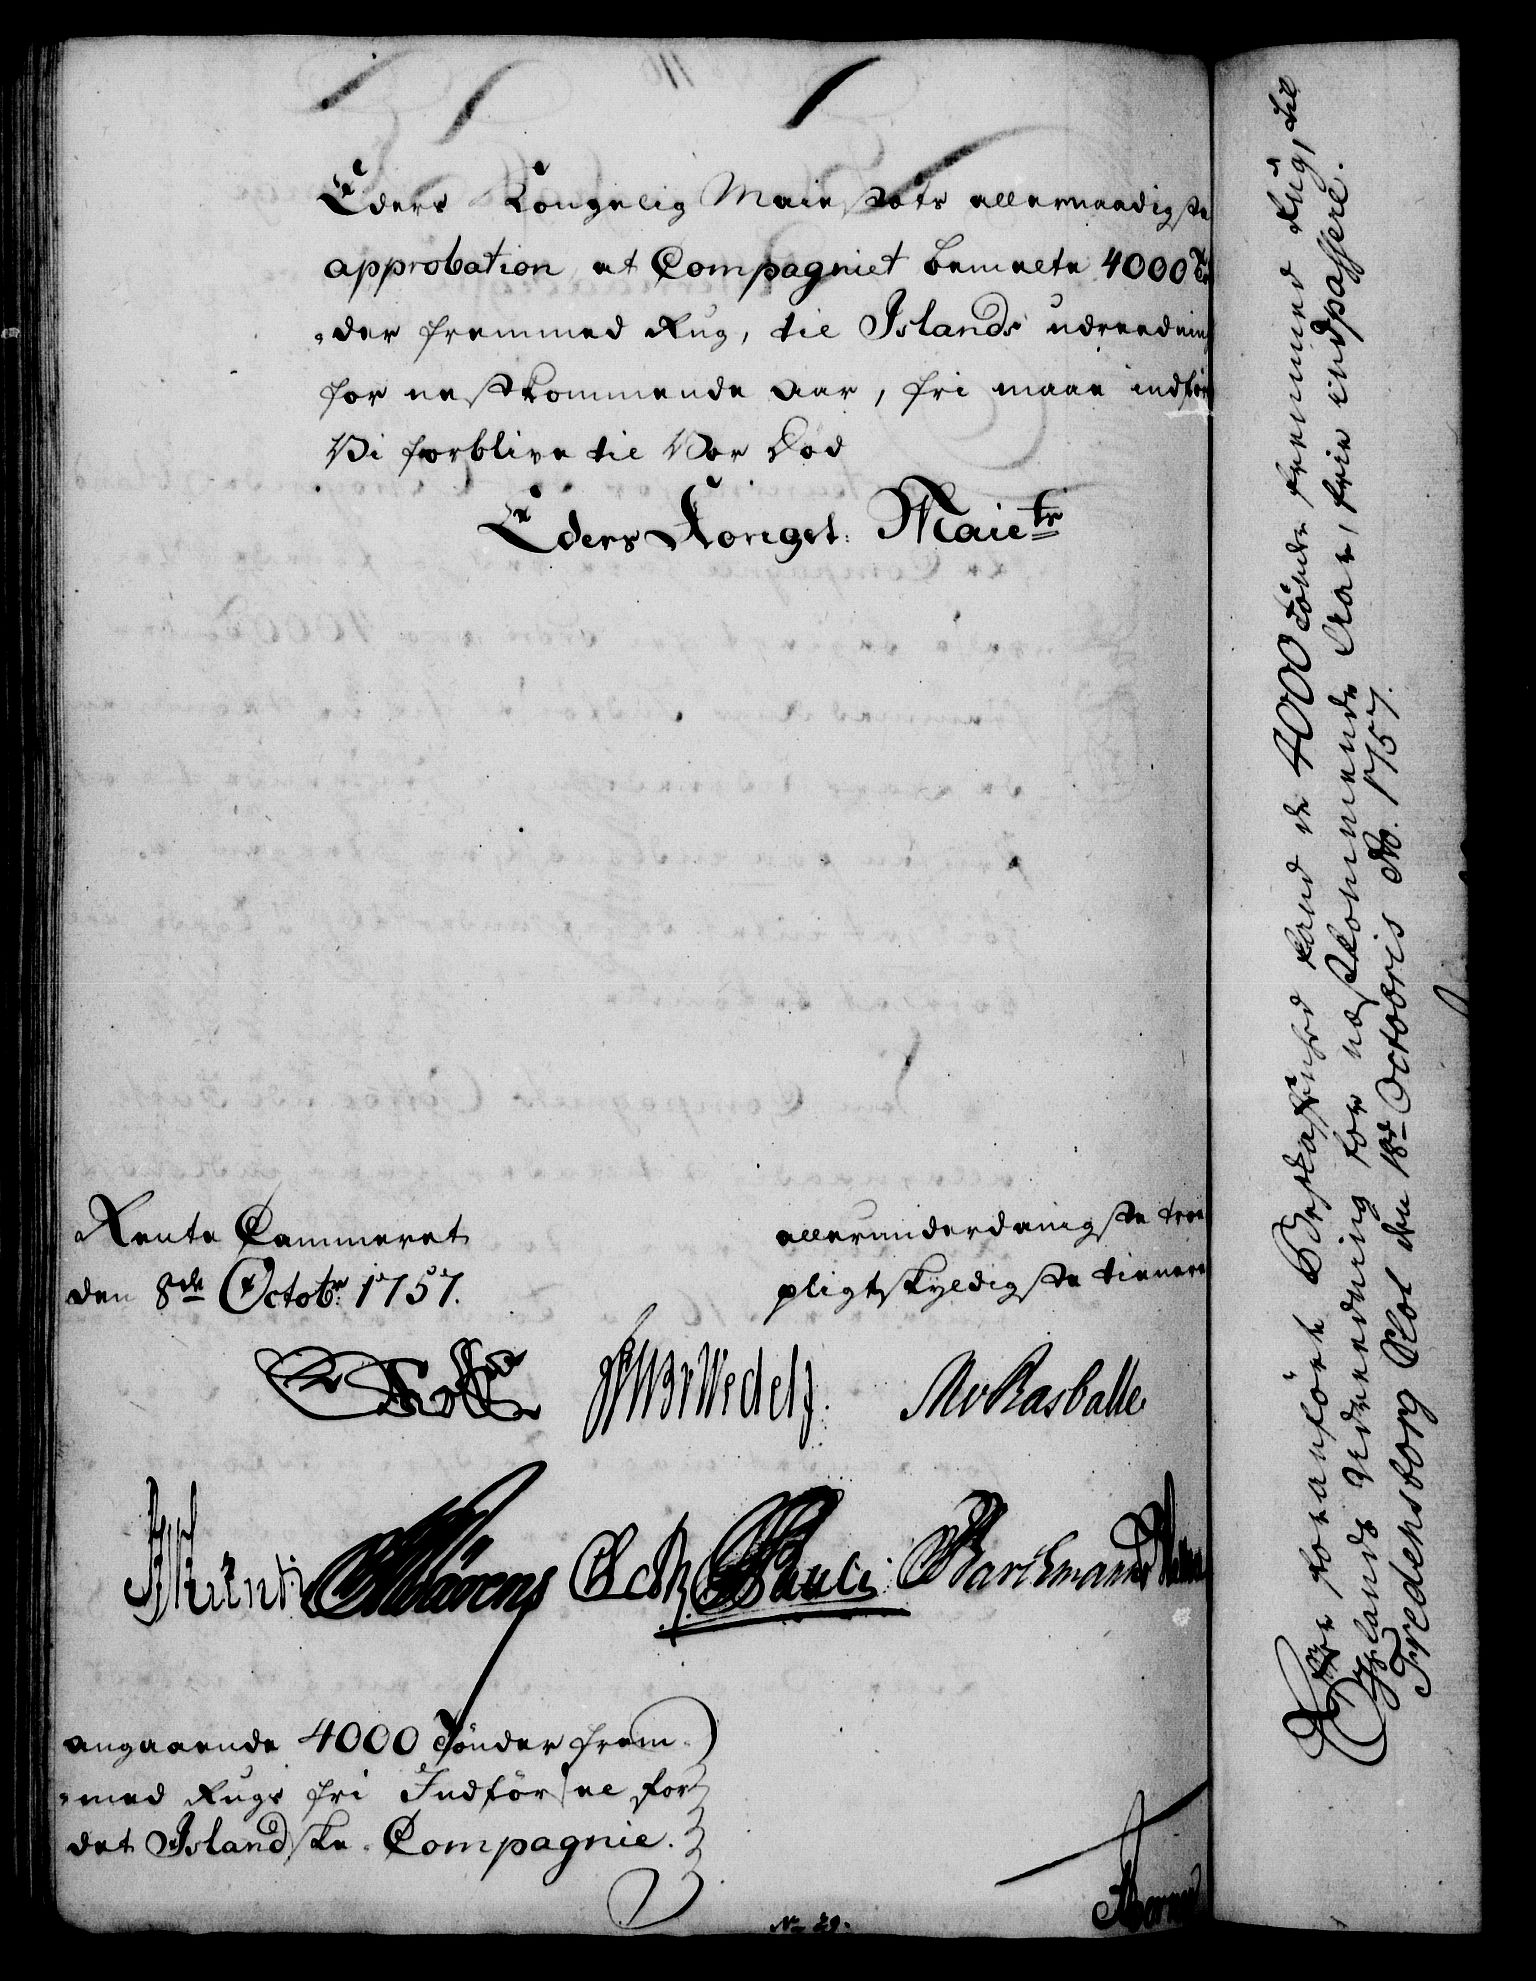 Eders Kongelig Maiestæts allernaadigste
approbation, at Compagniet bemelte 4000 Tø
-der fremmed Rug, til Islands udreedning
for nestkommende Aar, fri maae indføre
Vi forblive til Vor Død
Eders Kongel: Maietr
Rente Cammeret
den 8de Octobr: 1757.
allerunderdanigste troe
pligtskyldigste tienere
Wedelj.
MvRasballe
Pauli
angaaende 4000 Tønder frem-
-med Rugs fri Indførsel for
det Islandske Compagnie.
No 29.
Efter foranført Beskaffenhed kand de 4000 Tønder fremmed Rug, til
Islands Udreedning for næstkommende Aar, frie indpassere.
Fredensborg Slot den 18de Octobris Ao. 1757.